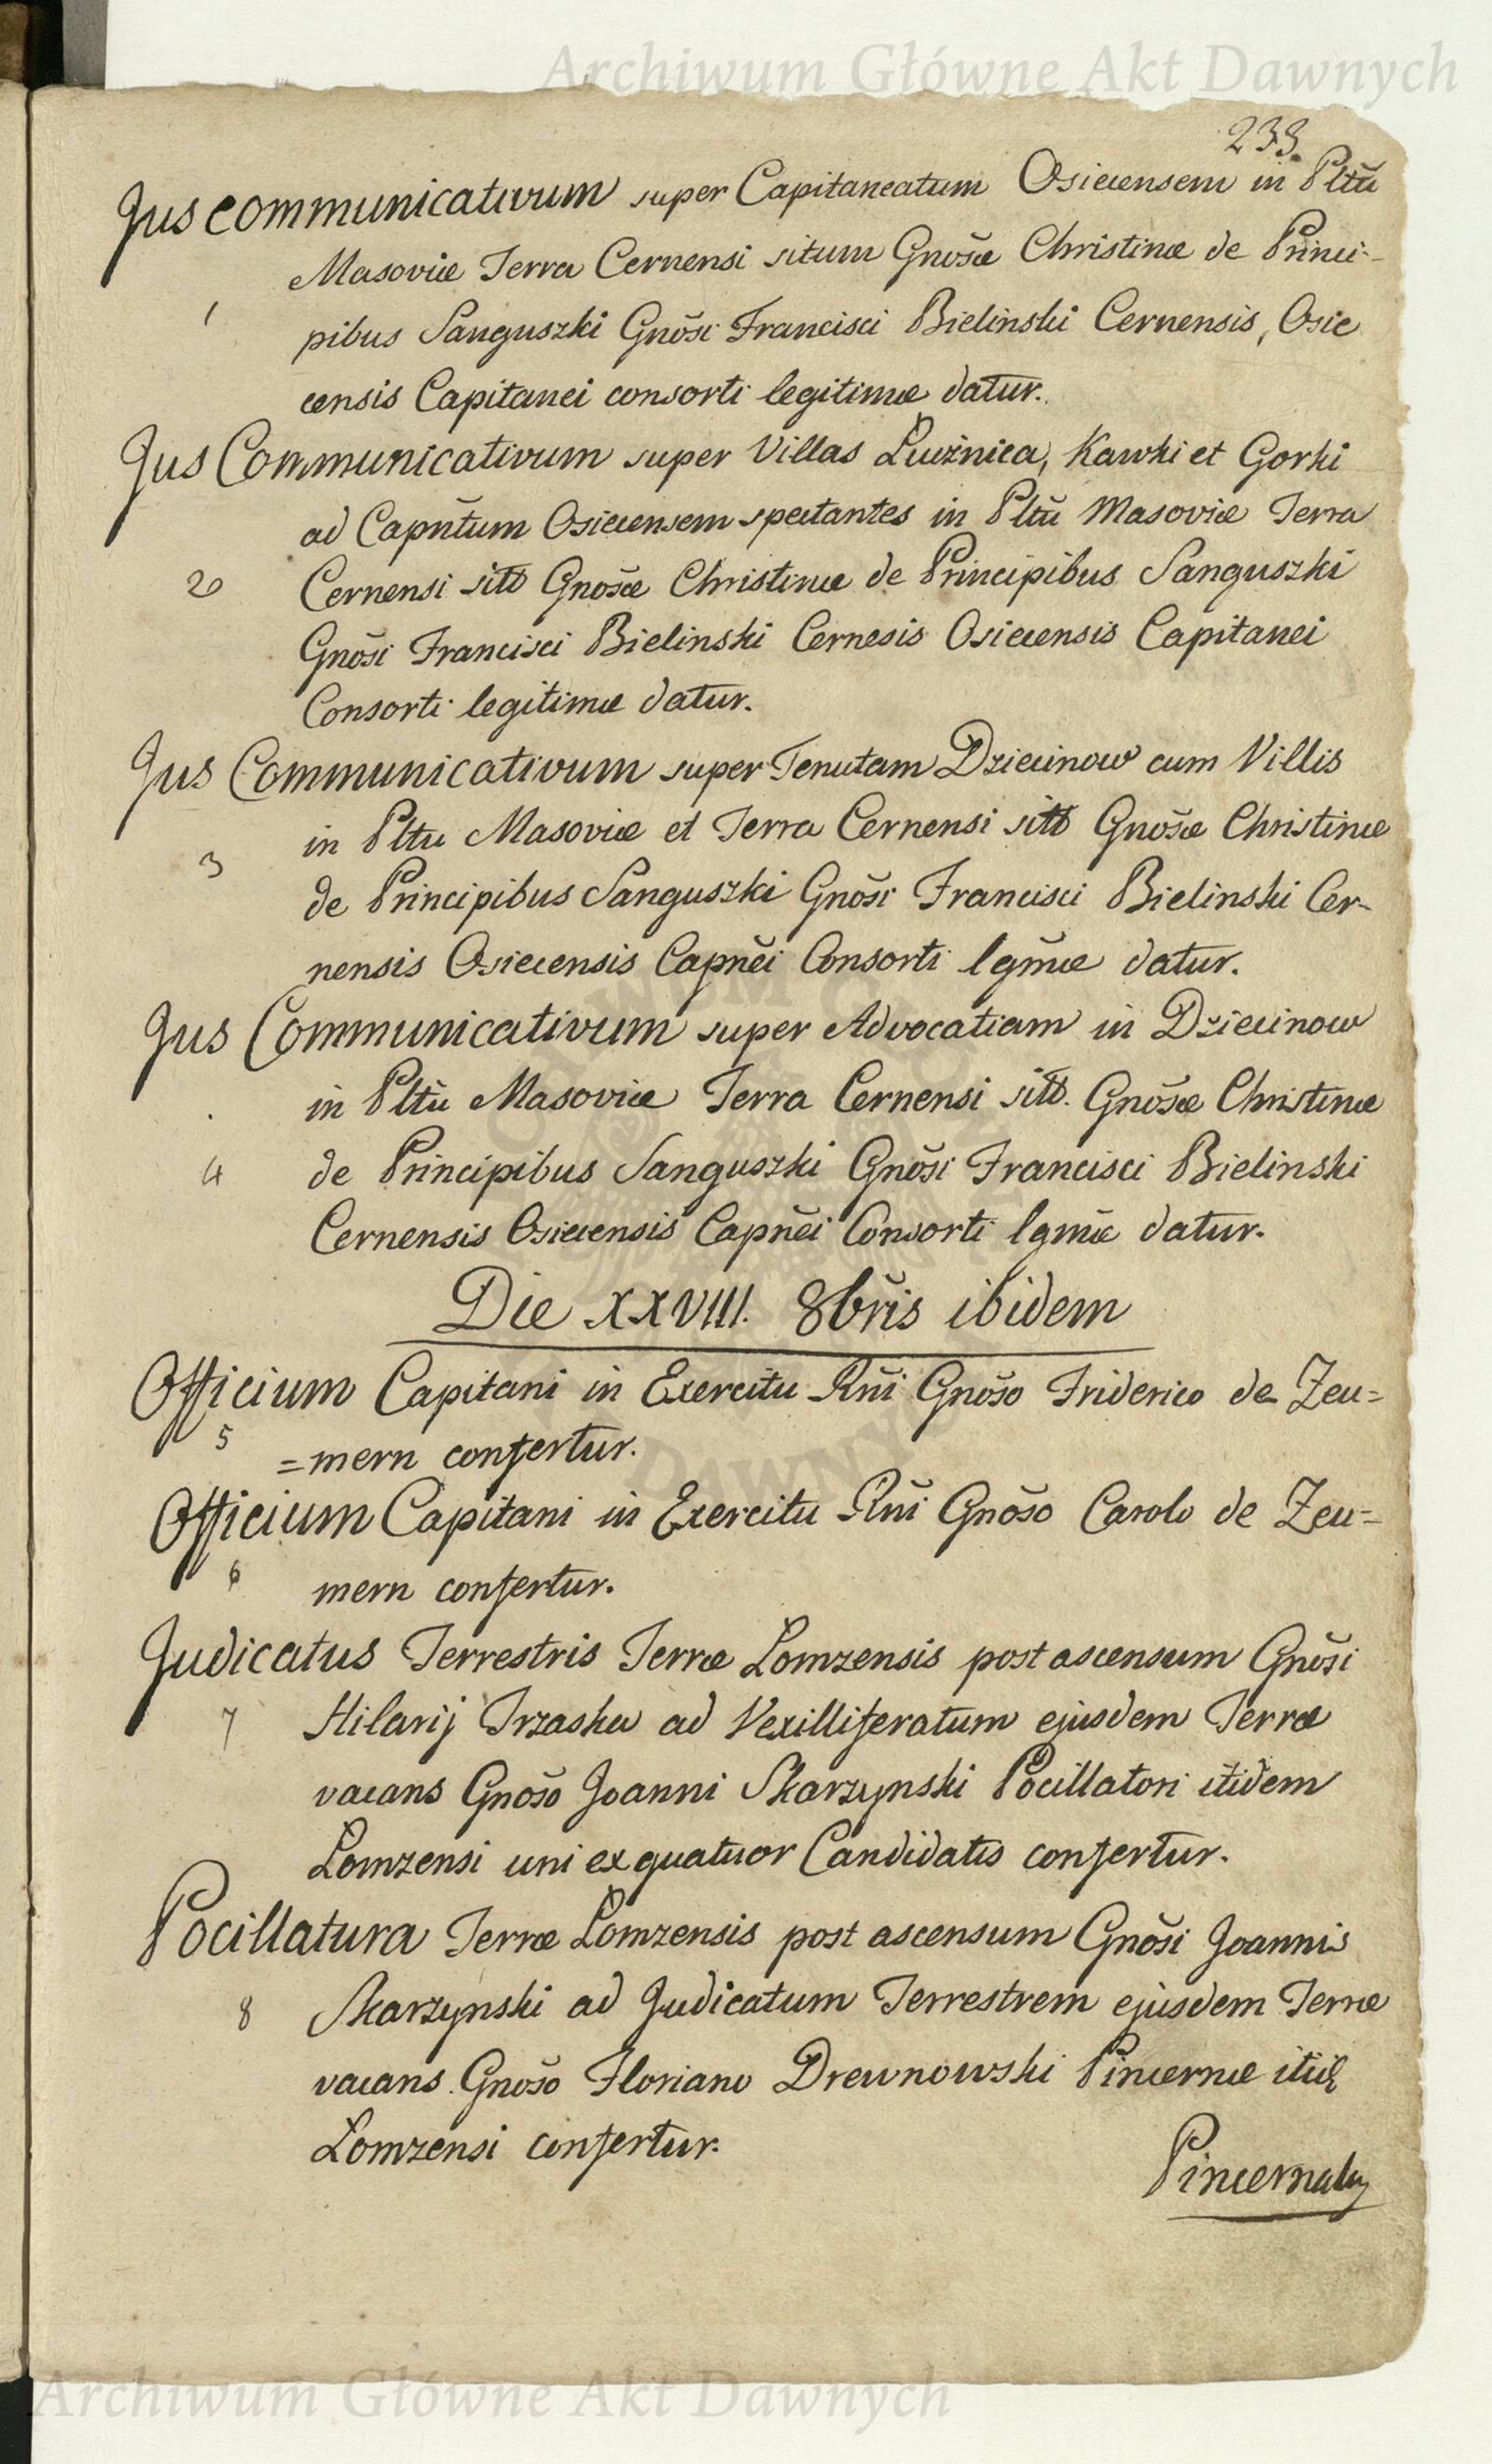 Archiwum Główne Akt Dawnych
233.
Jus communicativum super Capitaneatum Osiecensem in Pltũ
Masoviæ Terra Cernensi situm Gnõsæ Christinæ de Princi-
1 pibus Sanguszki Gnõsi Francisci Bielinski Cernensis, Osie
censis Capitanei consorti legitimæ datur.
Jus Communicativum super Villas Łucżnica, Kawki et Gorki
ad Capnt̃um Osiecensem spectantes in Pltũ Masoviæ Terra
2 Cernensi sitt̃ Gnosæ̃ Christinæ de Principibus Sanguszki
Gnõsi Francisci Bielinski Cernesis Osiecensis Capitanei
Consorti legitimæ datur.
Jus Communicativum super Tenutam Dziecinow cum Villis
in Pltu Masoviæ et Terra Cernensi sitt̃ Gnõsæ Christinæ
3 de Principibus Sanguszki Gnõsi Francisci Bielinski Cer-
nensis Osiecensis Capnẽi Consorti lgm̃æ datur.
Jus Communicativum super Advocatiam in Dziecinow
in Pltũ Masoviæ Terra Cernensi sitt̃. Gnõsæ Christinæ
4 de Principibus Sanguszki Gnõsi Francisci Bielinski
Cernensis Osiecensis Capnẽi Consorti lgmæ̃ datur.
Die XXVIII. 8bris̃ ibidem
Officium Capitani in Exercitu Rñi Gnõso Friderico de Zeu=
5 =mern confertur.
Officium Capitani in Exercitu Rñi Gnõso Carolo de Zeu=
6 mern confertur.
Judicatus Terrestris Terræ Łomzensis post ascensum Gnõsi
7 Hilarij Trzaska ad Vexilliferatum ejusdem Terræ
vacans Gnõso Joanni Skarzynski Pocillatori itidem
Łomzensi uni ex quatuor Candidatis confertur.
Pocillatura Terræ Łomzensis post ascensum Gnõsi Joannis
8 Skarzynski ad Judicatum Terrestrem ejusdem Terræ
vacans Gnõso Floriano Drewnowski Pincernæ
Łomzensi confertur.
Archiwum Główne Akt Dawnych